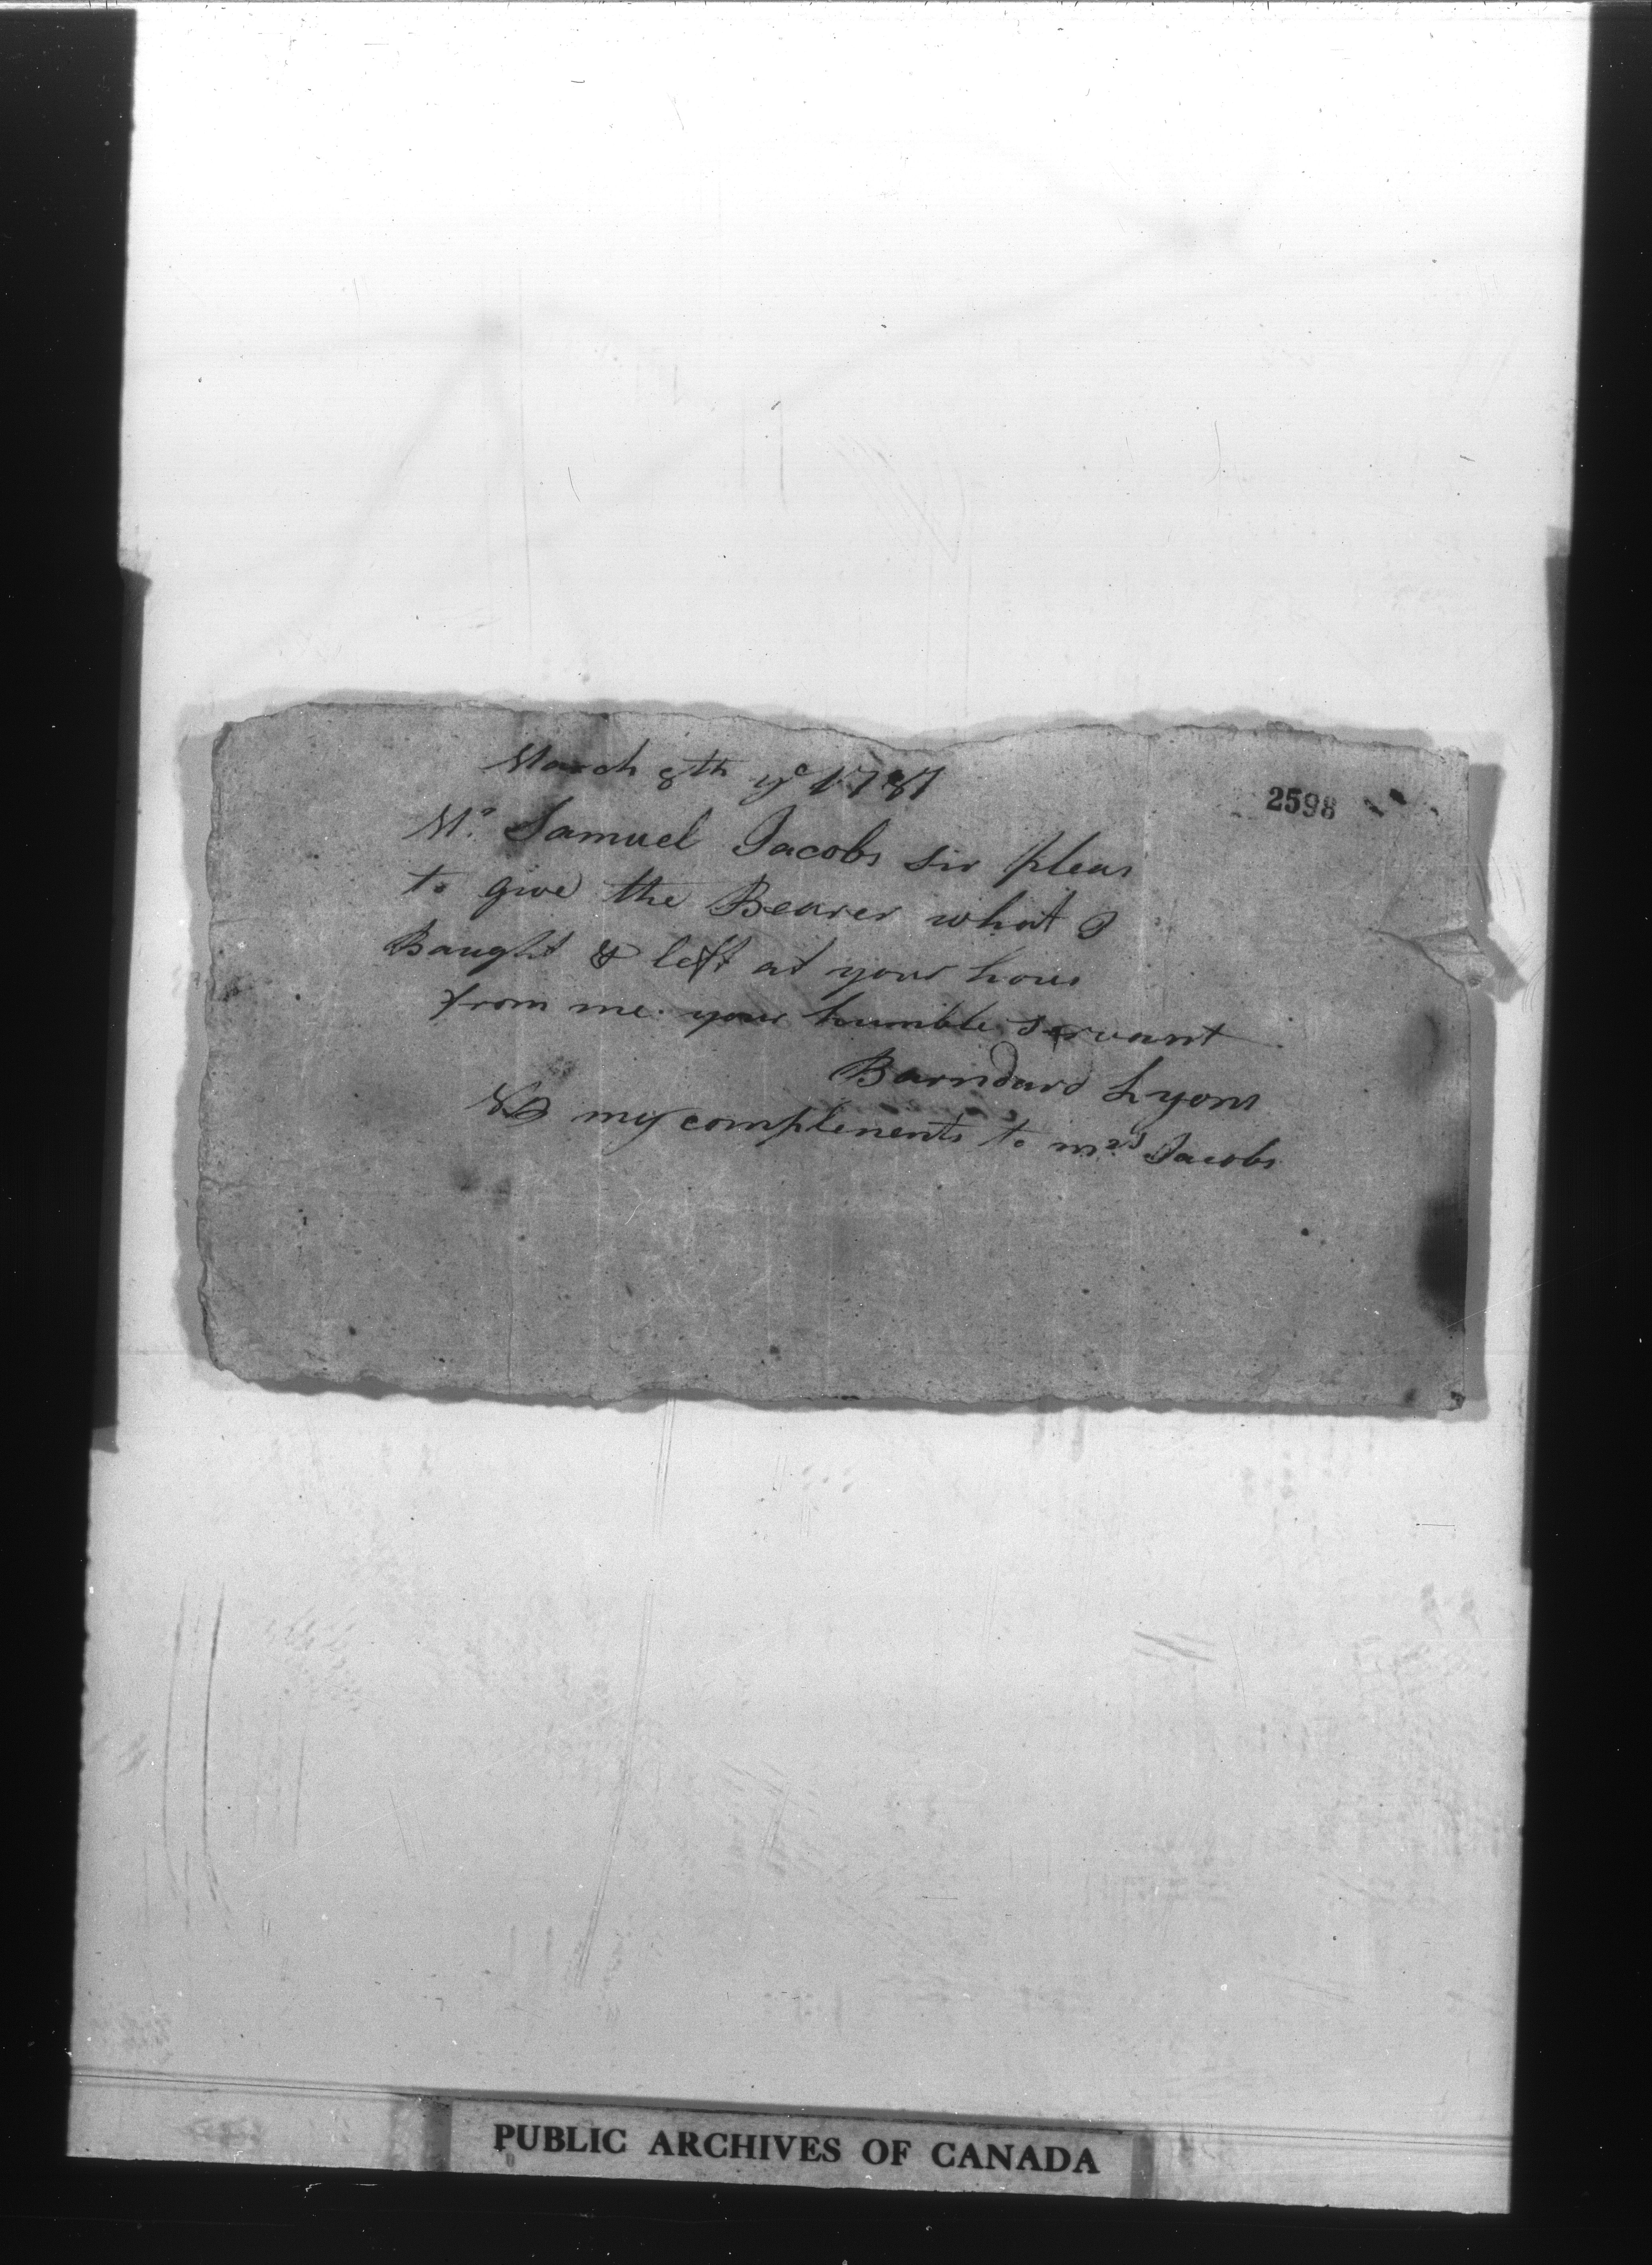 March 8th ye 1781
2598
Mr. Samuel Jacobs sir pleas
to give the Bearer what I
Baught & left at your hous
from me your humble servant
Barndard Lyons
NB my complements to mrs Jacobs
PUBLIC ARCHIVES OF CANADA